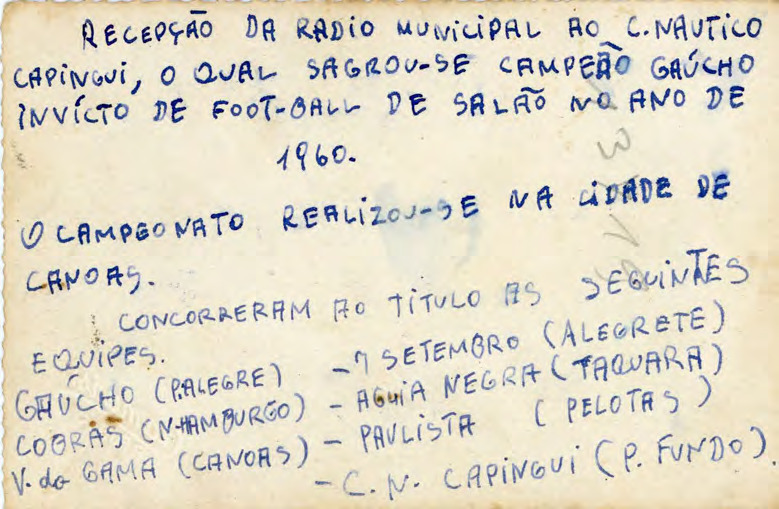 RECEPÇÃO DA RADIO MUNICIPAL AO C. NAUTICO
CAPINGUI, O QUAL SAGROU-SE CAMPEÃO GAÚCHO
INVÍCTO DE FOOT-BALL DE SALÃO NO ANO DE
1960.
O CAMPEONATO REALIZOU-SE NA CIDADE DE
CANOAS.
CONCORRERAM AO TITULO AS SEGUINTES
EQUIPES.
GAÚCHO (P.ALEGRE) - 7 SETEMBRO (ALEGRETE)
COBRAS (N-HAMBURGO) - AGUIA NEGRA (TAQUARA)
V. da GAMA (CANOAS) - PAULISTA ( PELOTAS )
- C. N. CAPINGUI (P. FUNDO).